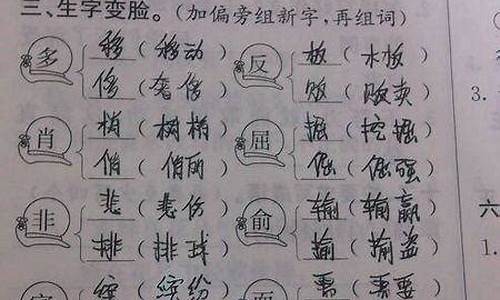 三、生字变脸。(加偏旁组新字,再组词)
多 移(移动) 反 板(木板)
侈(奢侈) 贩(贩卖)
3.
肖 梢(树梢) 屈 掘(挖掘)
俏(俏丽) 倔(倔强)
非 悲(悲伤) 俞 输(输赢)
六
排(排球) 偷(偷盗)
1.
缤(缤纷) 而 需(需要)